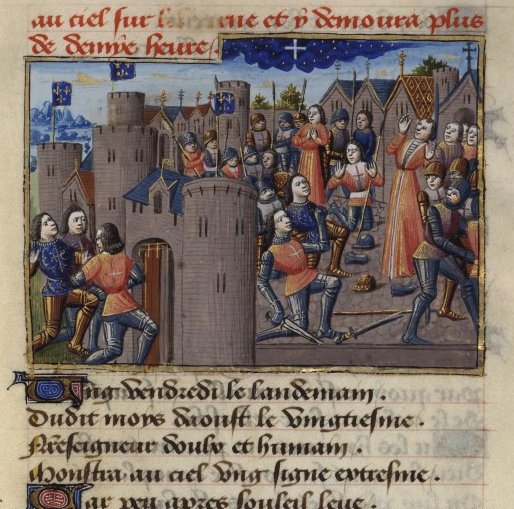 au ciel sur et y demoura plus
de demye heure.
Ung vendredi le landemain.
Dudit moys daoust le vingtiesme.
Nreseigneur doulx et humain.
Monstra au ciel ung signe extresme.
Car peu apres souleil leue.